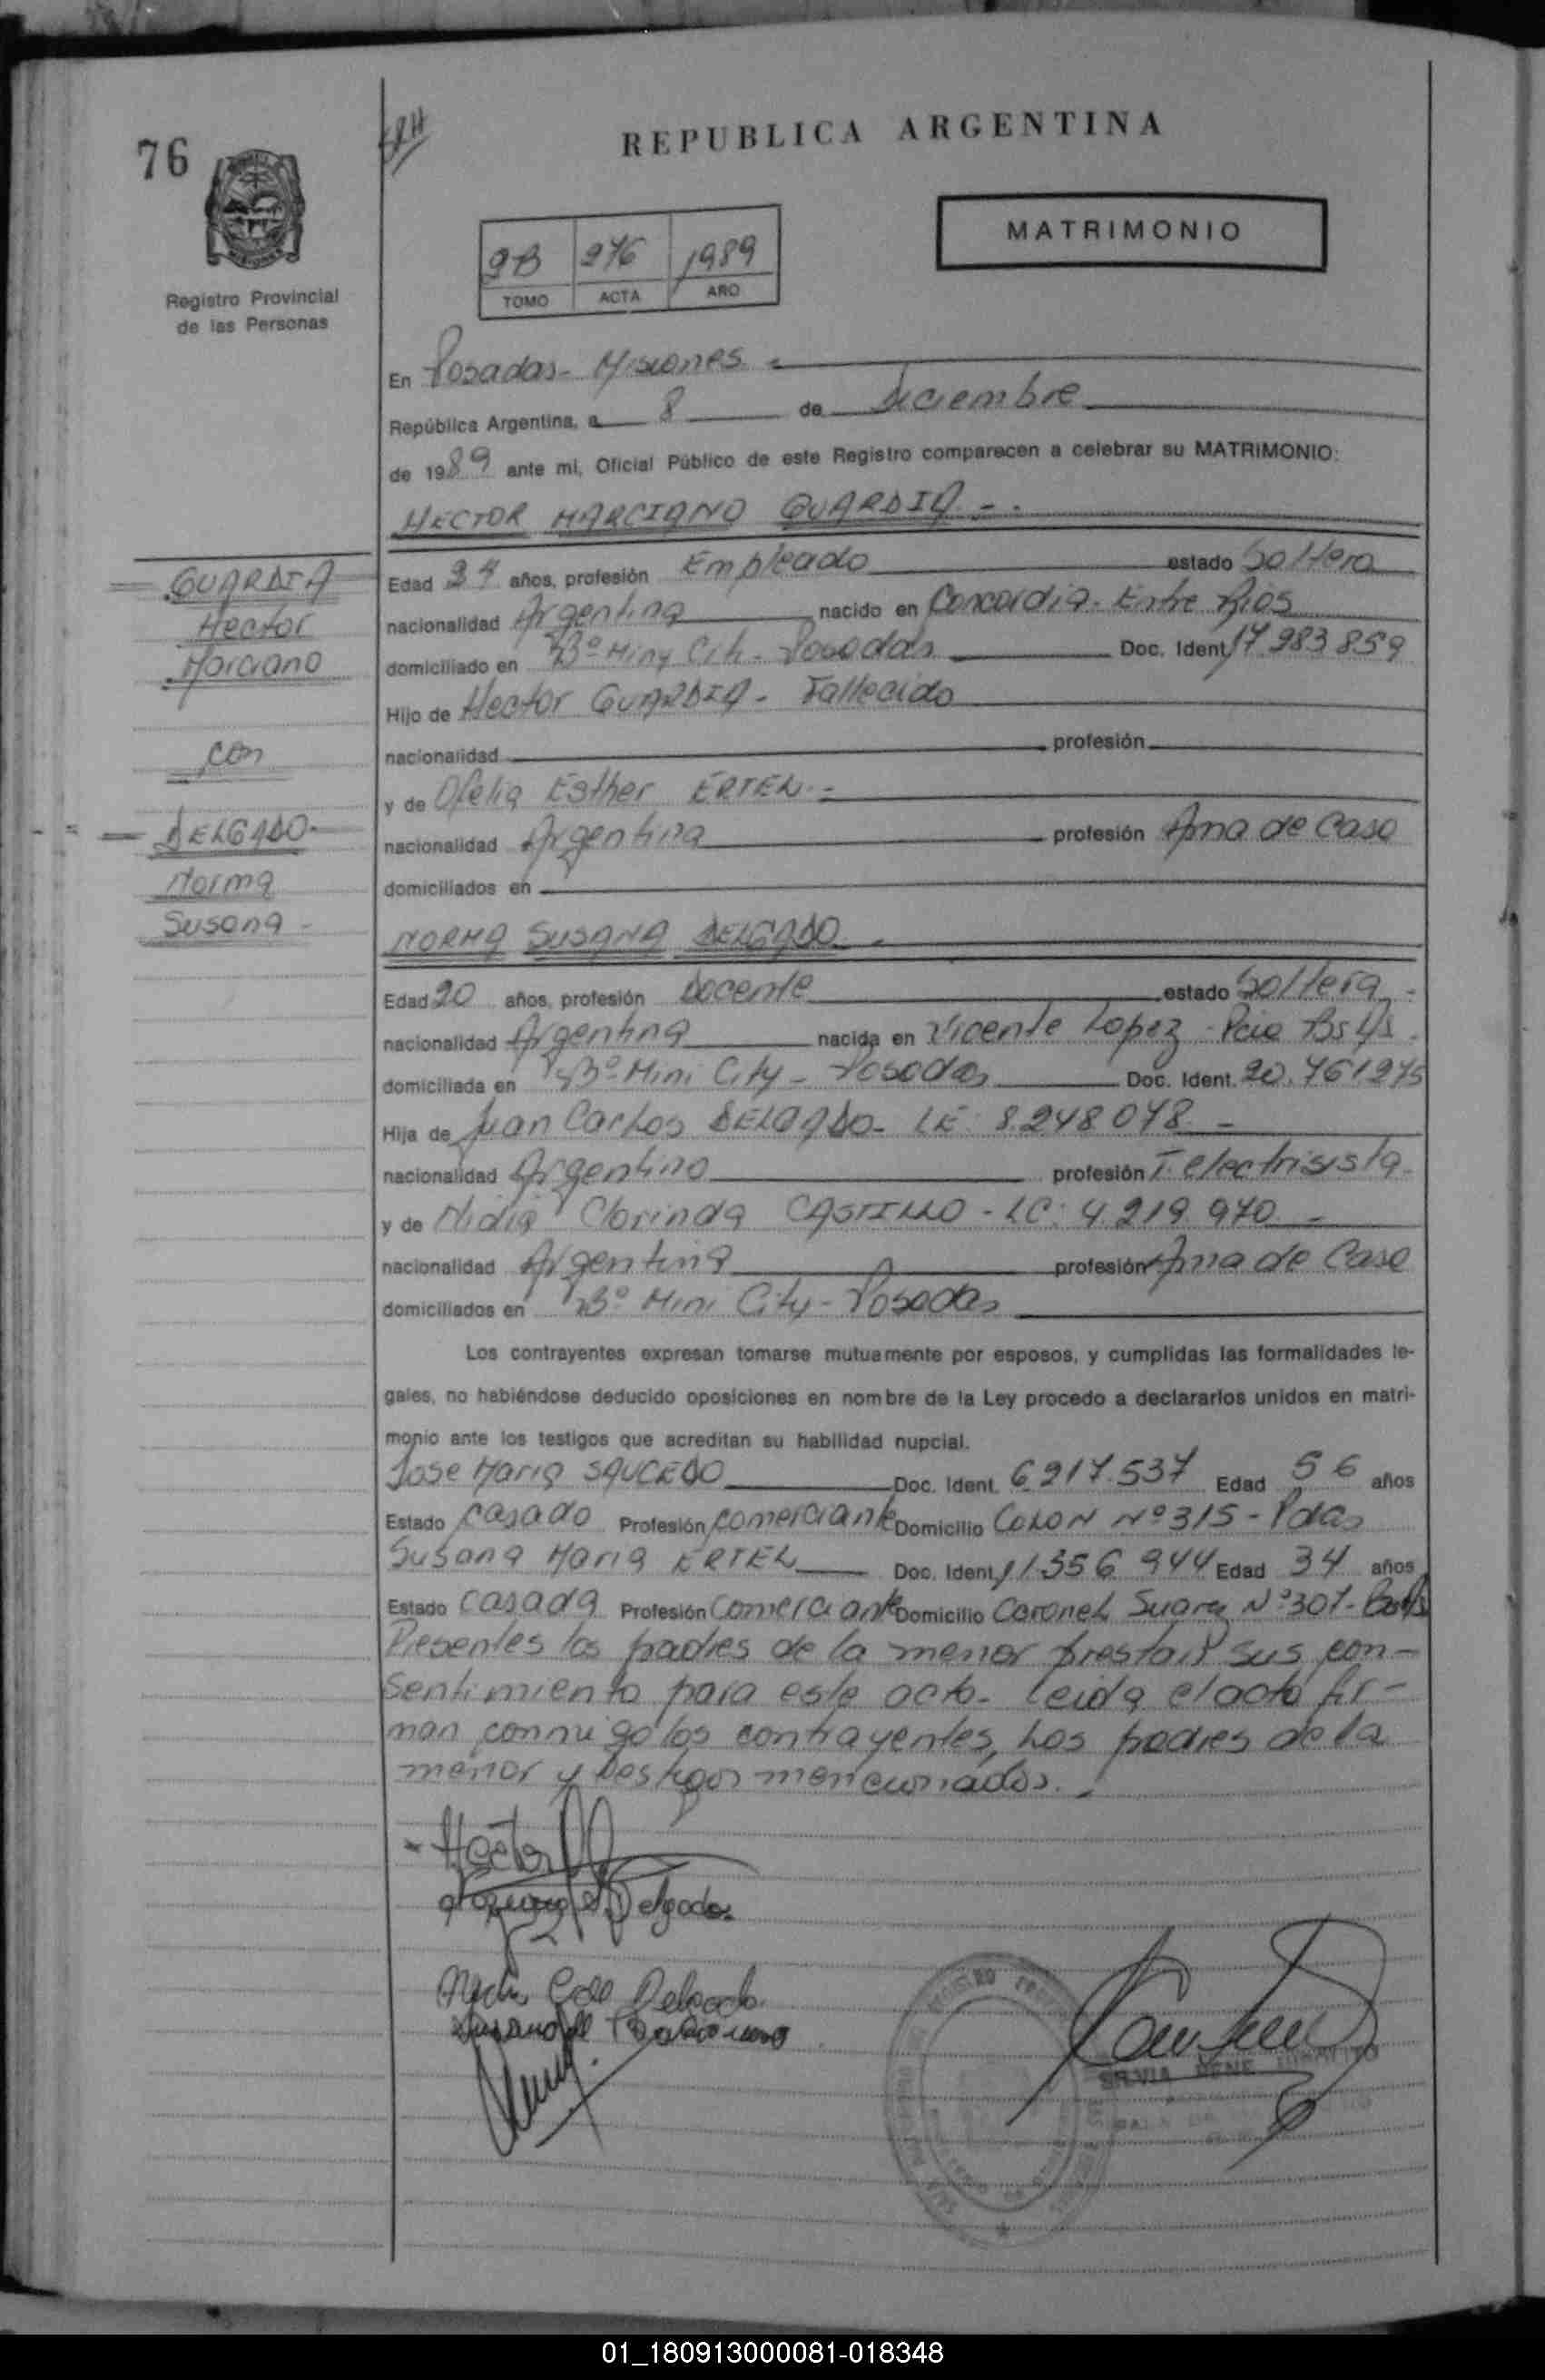 76
REPUBLICA ARGENTINA
MATRIMONIO
2B 276 1989
TOMO ACTA AÑO
Registro Provincial
de las Personas
En Posadas - Misiones -
República Argentina, a 8 de diciembre
de 1989 ante mi, Oficial Público de este Registro comparecen a celebrar su MATRIMONIO:
HECTOR MARCIANO GUARDIA - .
GUARDIA
Hector
Marciano
con
DELGADO -
Norma
Susana -
Edad 24 años, profesión Empleado estado Soltero
nacionalidad Argentina nacido en Concordia - Entre Rios
domiciliado en Bº Miny City - Posadas Doc. Ident. 17.983.859
Hijo de Hector GUARDIA - Fallecido
nacionalidad profesión
y de Ofelia Esther ERTEL. -
nacionalidad Argentina profesión Ama de Casa
domiciliados en
NORMA SUSANA DELGADO. -
Edad 20 años, profesión Docente estado Soltera -
nacionalidad Argentina nacida en Vicente Lopez - Pcia Bs As.
domiciliada en Bº Mini City - Posadas Doc. Ident. 20.761.275
Hija de Juan Carlos DELGADO - LE: 8.248.078. -
nacionalidad Argentino profesión T. electrisista.
y de Nidia Clorinda CASTILLO - LC: 4.219.970. -
nacionalidad Argentina profesión Ama de Casa
domiciliados en Bº Mini City - Posadas
Los contrayentes expresan tomarse mutuamente por esposos, y cumplidas las formalidades le-
gales, no habiéndose deducido oposiciones en nombre de la Ley procedo a declararlos unidos en matri-
monio ante los testigos que acreditan su habilidad nupcial.
Jose Maria SAUCEDO Doc. Ident. 6.217.537 Edad 56 años
Estado Casado Profesión comerciante Domicilio COLON Nº 315 - Pdas
Susana Maria ERTEL Doc. Ident. 11.356.944 Edad 34 años
Estado Casada Profesión Comerciante Domicilio Coronel Suarez Nº 307 -
Presentes los padres de la menor prestan sus con-
sentimiento para este acto - leida el acta fir-
man conmigo los contrayentes, Los padres de la
menor y testigos mencionados. -
Hector
Norma S. Delgado
Delgado
SILVIA RENE
01_180913000081-018348